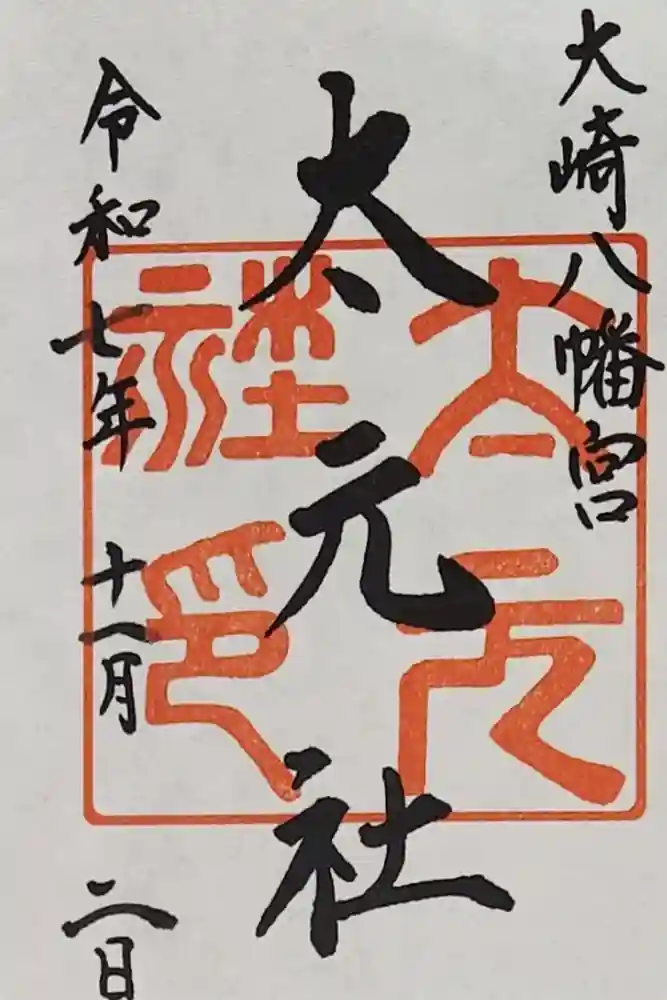 大崎八幡宮
太元社
令和七年十一月二日
太元社印